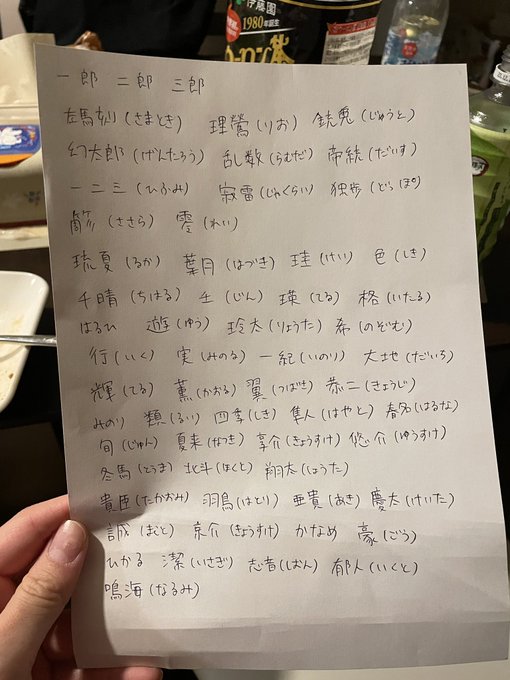 伊藤園
1980年誕生
お〜いお茶
一郎 二郎 三郎
左馬刻(さまとき) 理鶯(りお) 銃兎(じゅうと)
幻太郎(げんたろう) 乱数(らむだ) 帝統(だいす)
一二三(ひふみ) 寂雷(じゃくらい) 独歩(どっぽ)
簓(ささら) 零(れい)
琉夏(るか) 葉月(はづき) 珪(けい) 色(しき)
千晴(ちはる) 壬(じん) 瑛(てる) 格(いたる)
はるひ 遊(ゆう) 玲太(りょうた) 希(のぞむ)
行(いく) 実(みのる) 一紀(いのり) 大地(だいち)
輝(てる) 薫(かおる) 翼(つばさ) 恭二(きょうじ)
みのり 類(るい) 四季(しき) 隼人(はやと) 春名(はるな)
旬(じゅん) 夏来(なつき) 享介(きょうすけ) 悠介(ゆうすけ)
冬馬(とうま) 北斗(ほくと) 翔太(しょうた)
貴臣(たかおみ) 羽鳥(はとり) 亜貴(あき) 慶太(けいた)
誠(まこと) 京介(きょうすけ) かなめ 豪(ごう)
ひかる 潔(いさぎ) 志音(しおん) 郁人(いくと)
鳴海(なるみ)